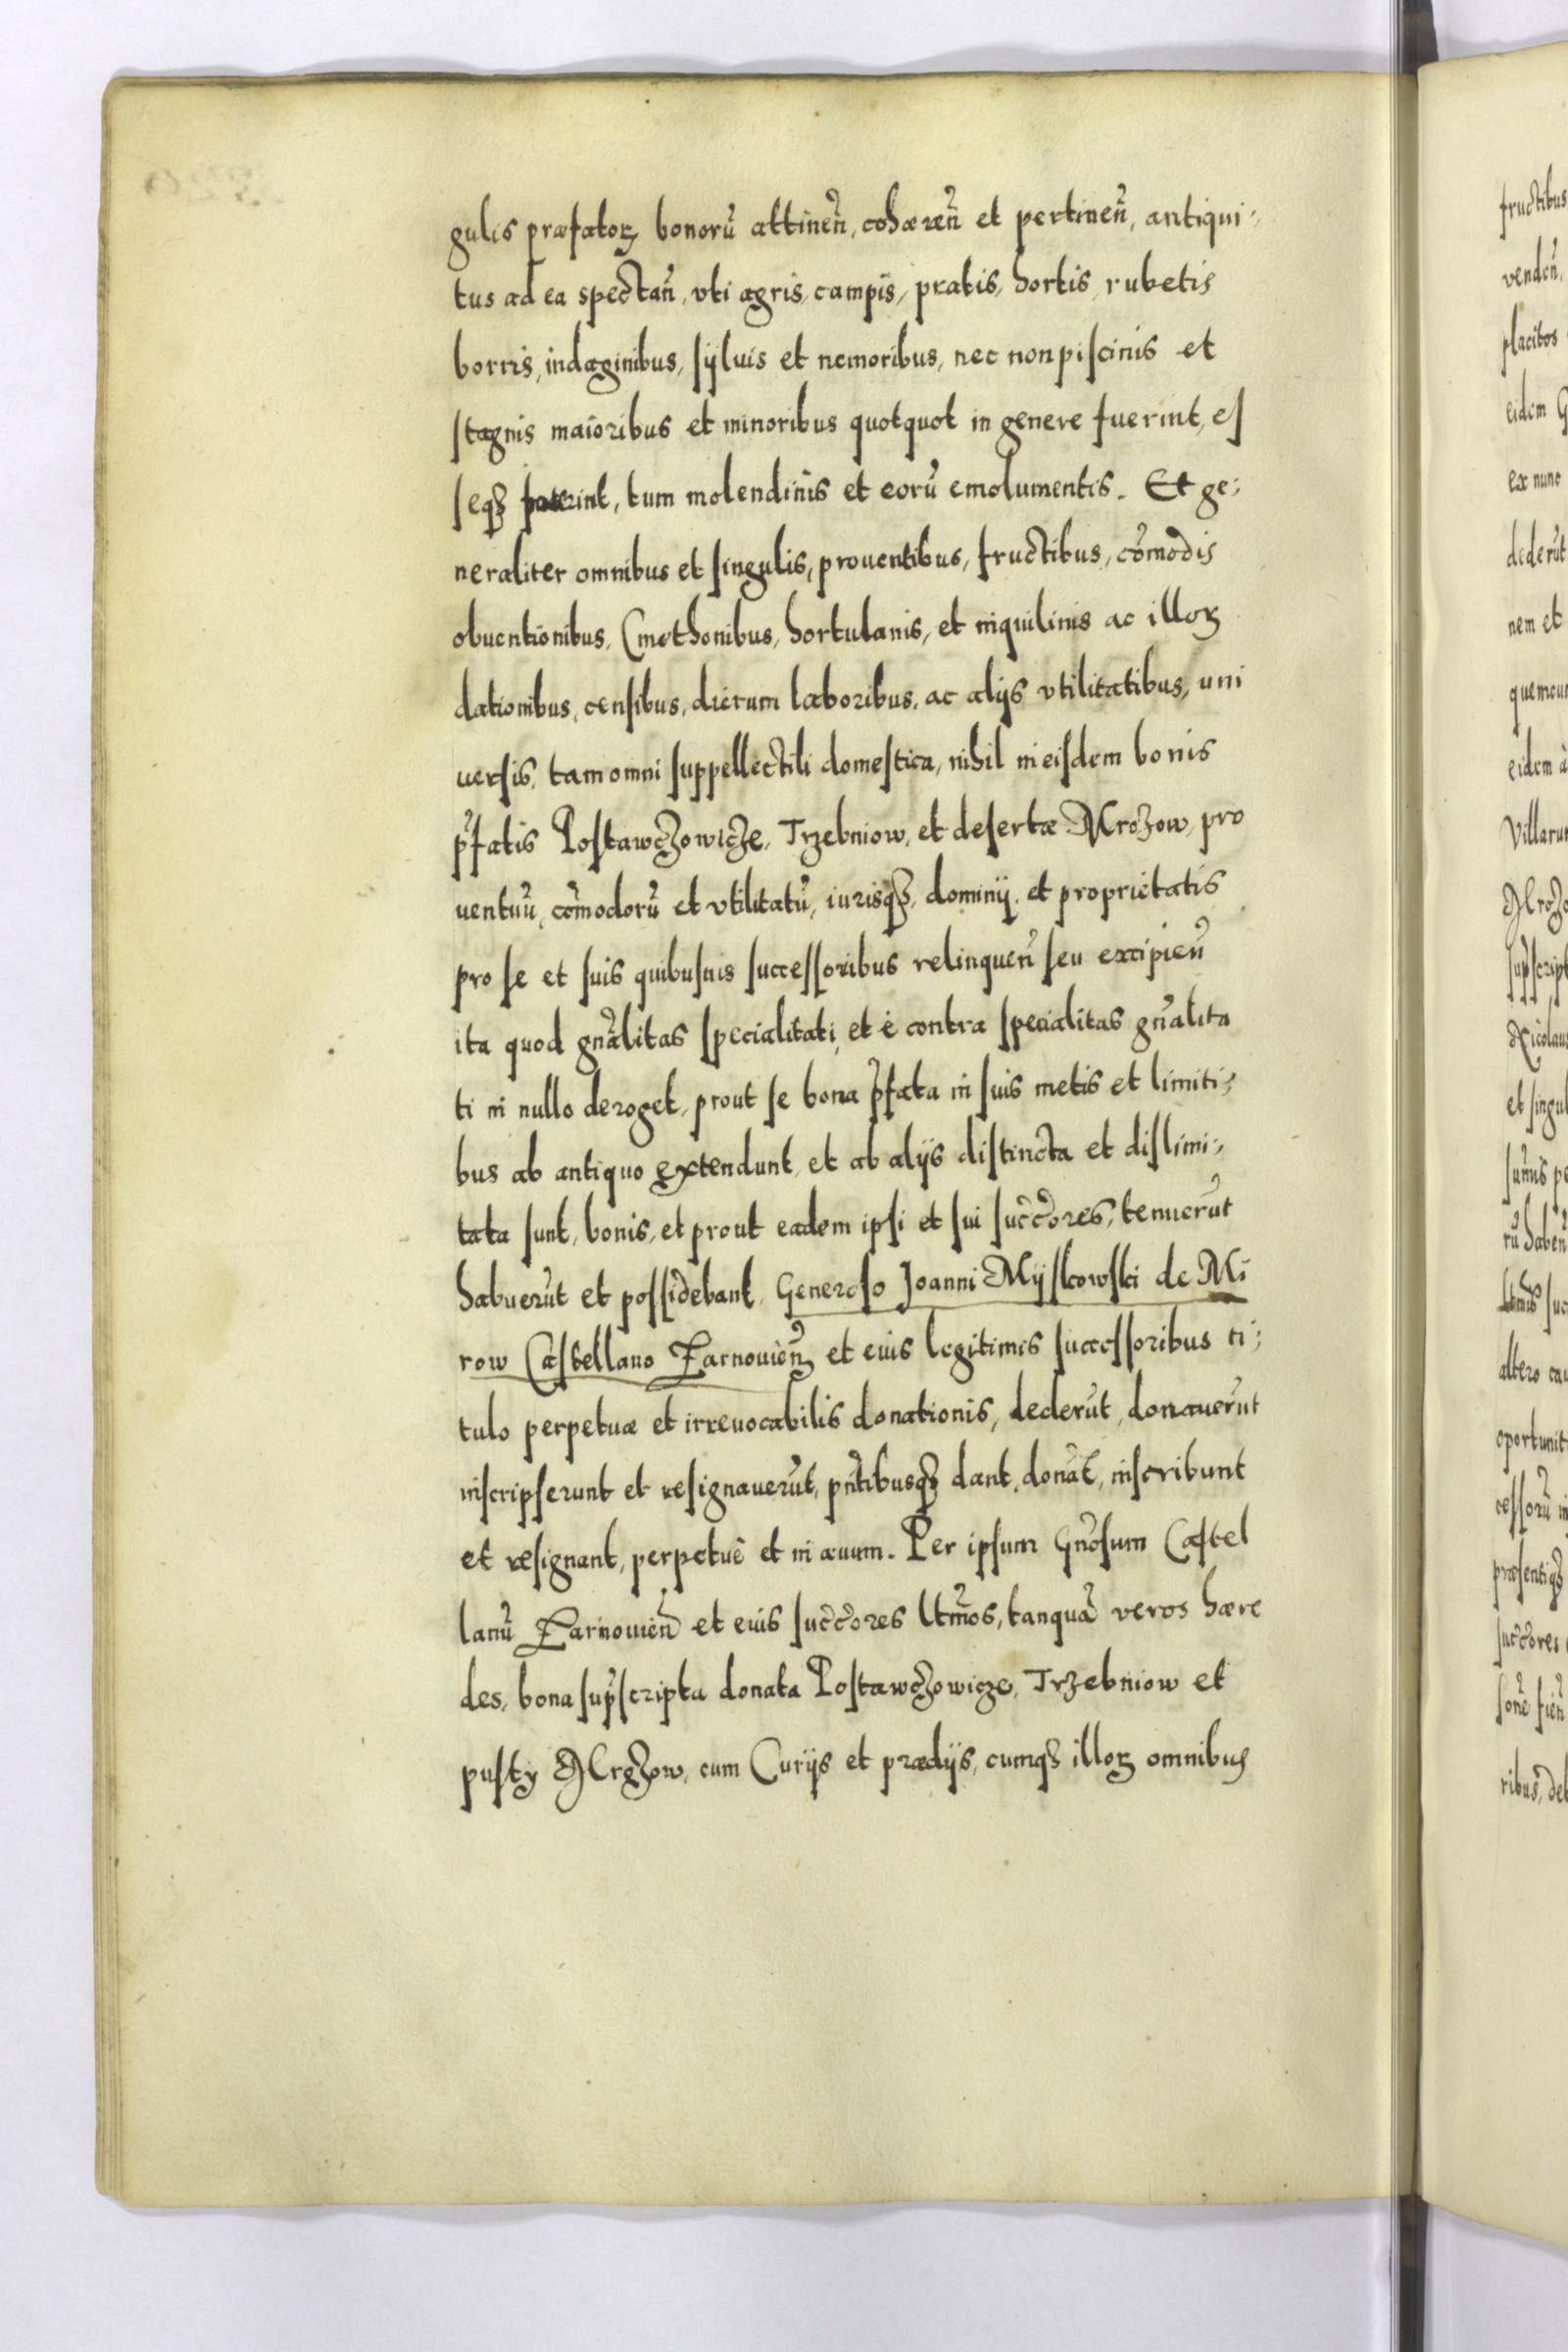 gulis præfatoꝝ bonorũ attineñ, cohæreñ et pertineñ, antiqui-
tus ad ea spectañ, vti agris, campis, pratis, hortis, rubetis
borris, indaginibus, sÿluis et nemoribus, nec non piscinis et
stagnis maioribus et minoribus quotquot in genere fuerint, es
seqꝫ poterint, tum molendinis et eorũ emolumentis. Et ge-
neraliter omnibus et singulis, prouentibus, fructibus, cõmodis
obuentionibus, Cmethonibus, hortulanis, et inquilinis ac illoꝝ
dationibus, censibus, dierum laboribus, ac alijs vtilitatibus, uni
uersis, tam omni suppellectili domestica, nihil in eisdem bonis
p̃fatis Postawczowicze, Trzebniow, et desertæ Mrozow, pro
uentuũ, cõmodorũ et vtilitatũ, iurisqꝫ, dominij, et proprietatis
pro se et suis quibusuis successoribus relinqueñ seu excipieñ
ita quod gñalitas specialitati, et è contra specialitas gñalita
ti in nullo deroget, prout se bona p̃fata in suis metis et limiti-
bus ab antiquo extendunt, et ab alijs distincta et dislimi-
tata sunt, bonis, et prout eadem ipsi et sui succ̃ores, tenuerũt
habuerũt et possidebant, Generoso Joanni Mÿskowski de Mi
row Castellano Zarnouieñ et eius legitimis successoribus ti-
tulo perpetuæ et irreuocabilis donationis, dederũt, donauerũt
inscripserunt et resignauerũt, pñtibusqꝫ dant, donãt, inscribunt
et resignant, perpetuè et in æuum. Per ipsum Gñosum Castel
lanũ Zarnouieñ et eius succ̃ores ltĩmos, tanquã veros hære
des, bona sup̃scripta donata Postawczowicze, Trzebniow et
pusty Mrozow, cum Curijs et prædijs, cumqꝫ illoꝝ omnibus